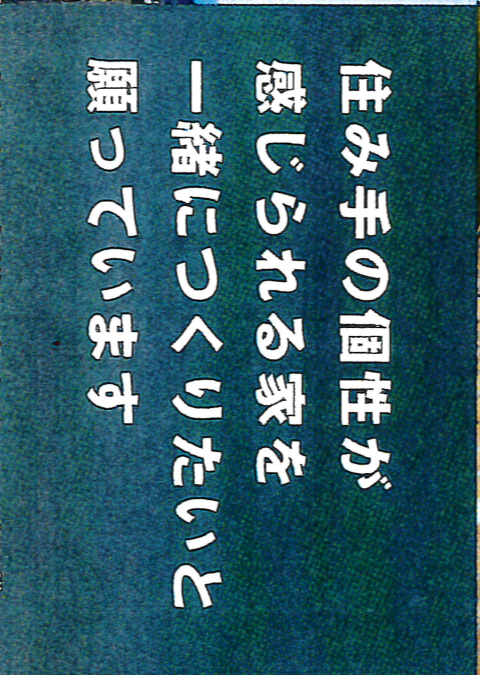 住み手の個性が
感じられる家を
一緒につくりたいと
願っています